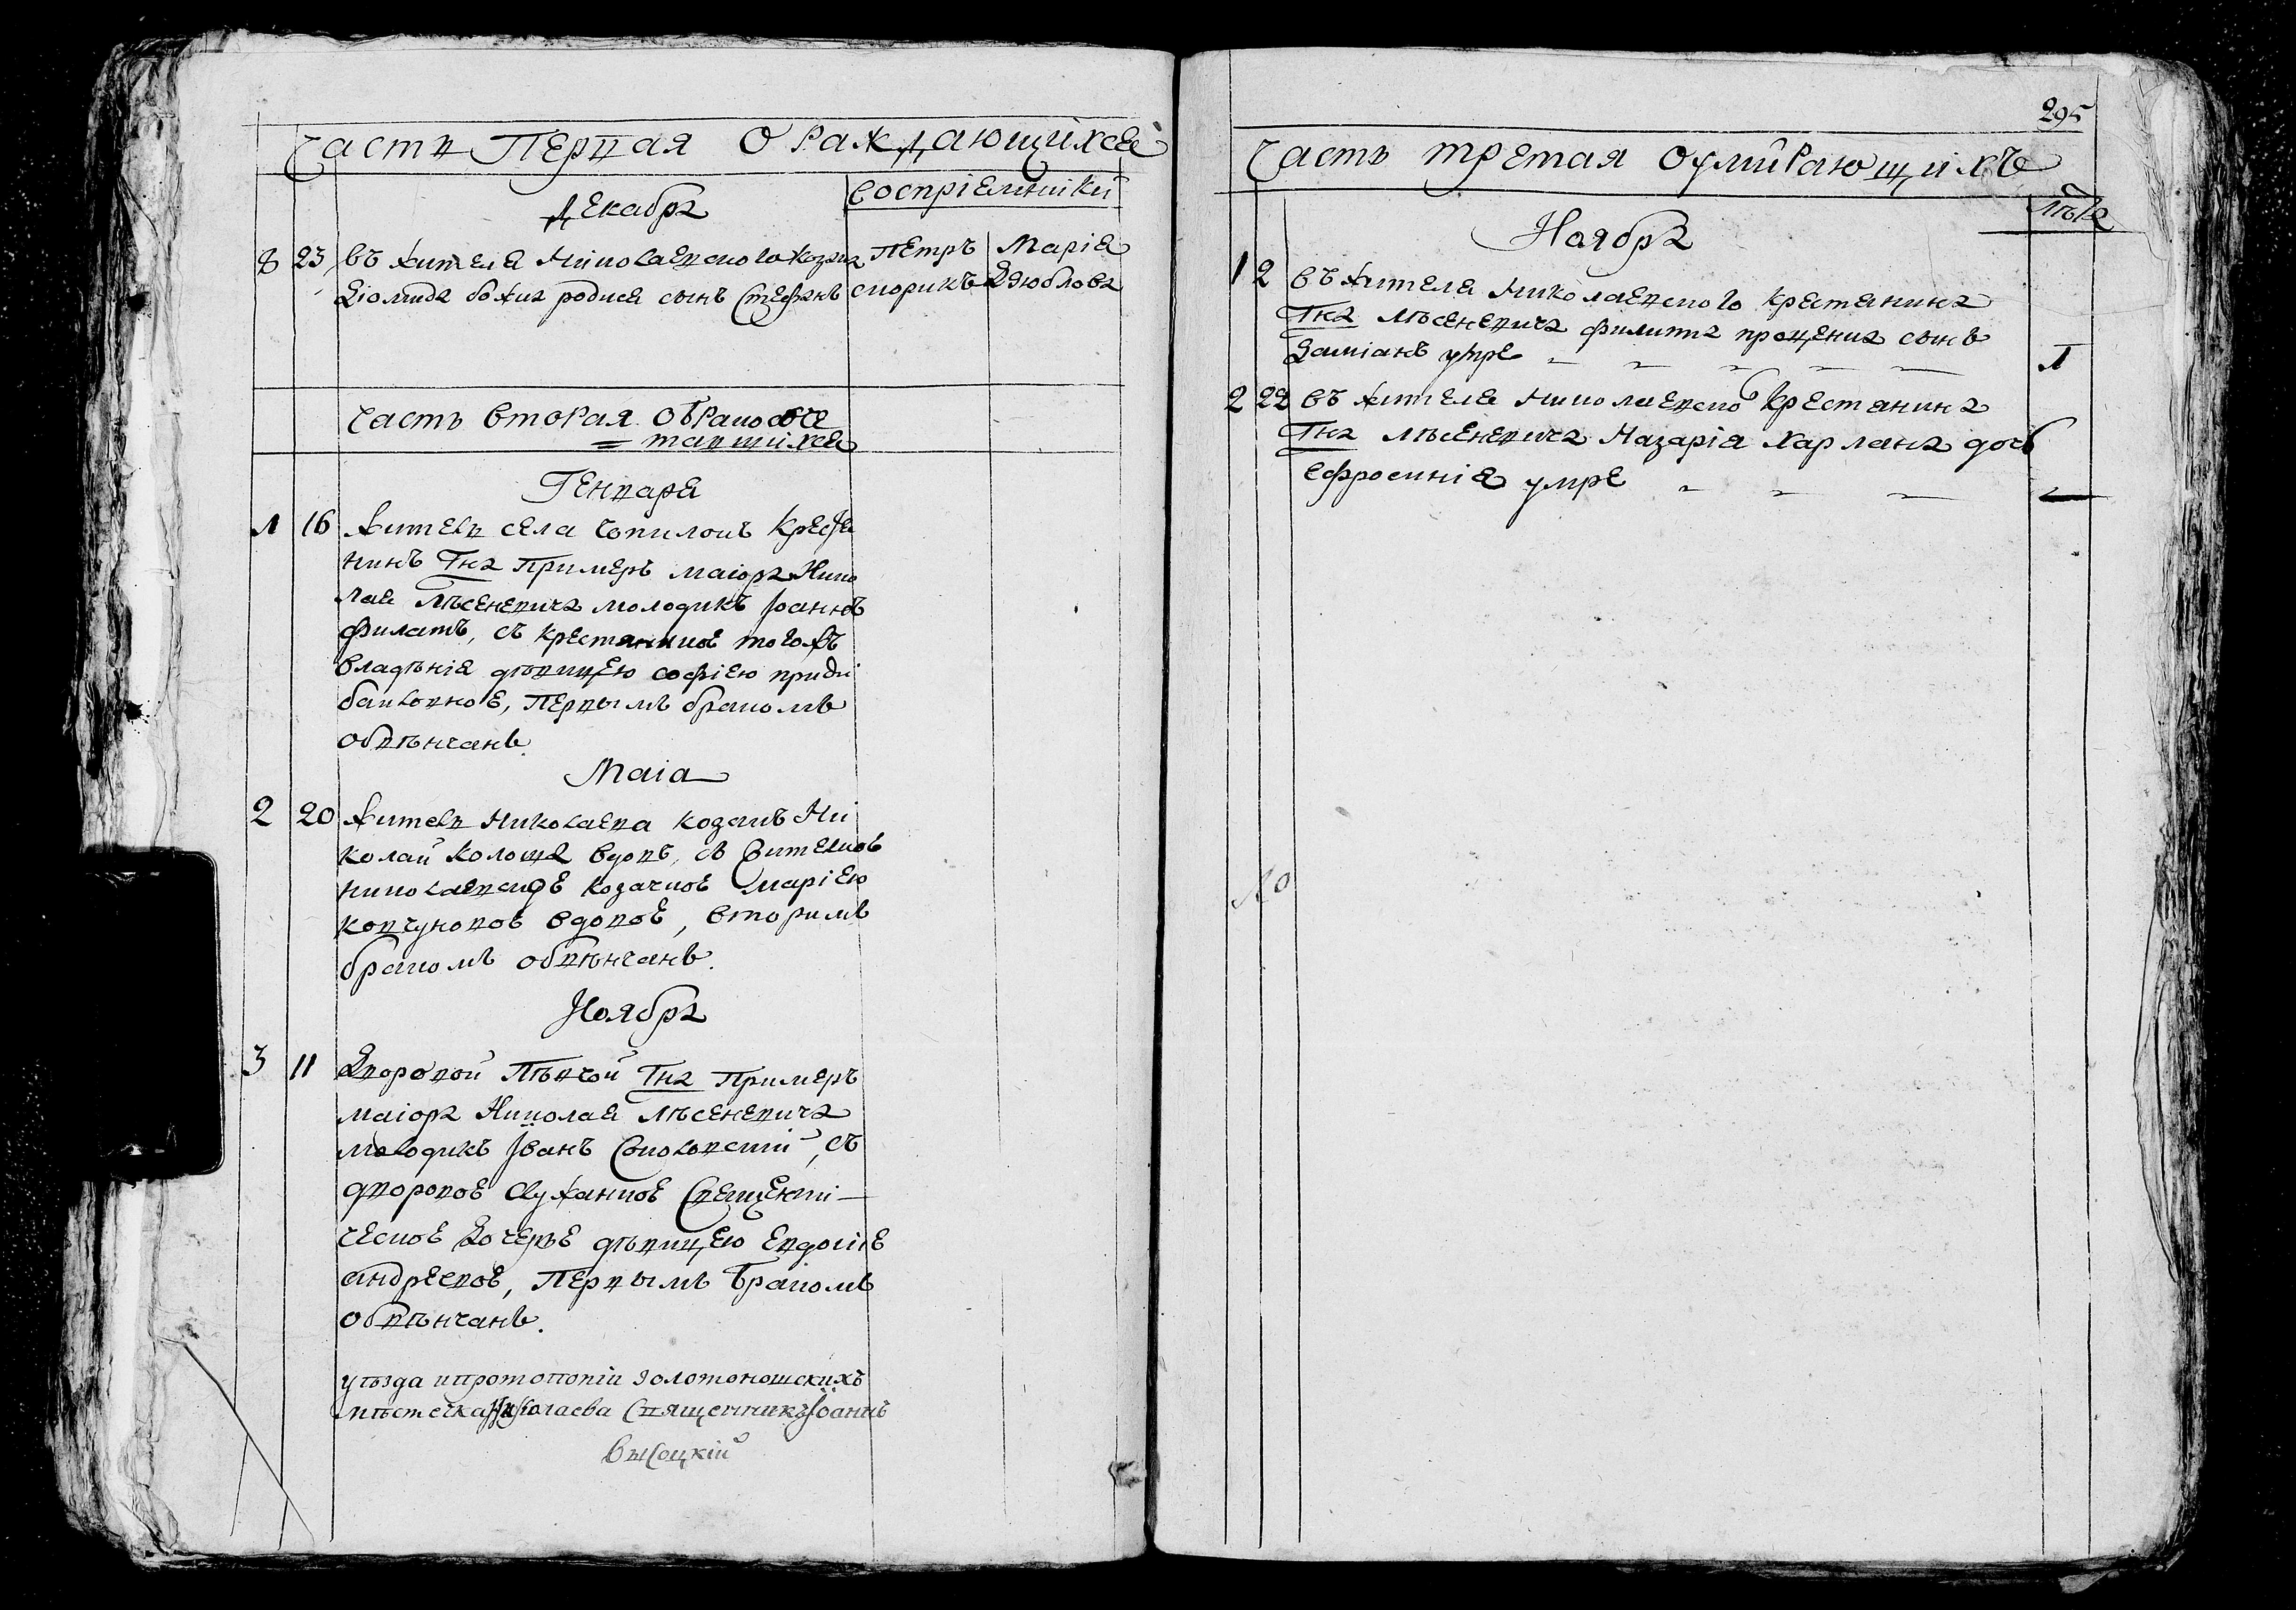 Часть Первая о раждающихся
Декабря
воспріемники
8 23 въ жителя николаевского козака Петръ Марія
Діомида божка родися сынъ Стефанъ скорикъ Дзюблова
Часть вторая о бракосоче
= тавшихся
Генваря
1 16 Житель села чопиловъ Крестя
нинъ Гна Примеръ маіора Нико
лая Лѣсеневича молодикъ Іоаннъ
филатъ, съ крестянкоѣ тогожъ
владѣнія дѣвицею софіею приди
балковноѣ, Первымъ бракомъ
обвѣнчанъ.
Маіа
2 20 Житель Николаева козакъ Ни
колай Колоща вдовъ, съ жителкоѣ
николаевскоѣ козачкоѣ Маріею
ковчуновоѣ вдовоѣ, вторимъ
бракомъ обвѣнчанъ.
Ноября
3 11 Дворовой Пѣвчой Гна Примеръ
маіора Николая Лѣсеневича
молодикъ Іванъ Соколовскій, съ
дворовоѣ служанкоѣ Священни-
ческоѣ Дочерѣ дѣвицею Евдокіѣ
андреевоѣ, Первымъ Бракомъ
обвѣнчанъ.
уѣзда и протопопіи золотоношскихъ
мѣстечка Николаева Священникъ Іоаннъ
высоцкій
295
Часть третая о умирающихъ
лѣта
Ноября
1 2 въ жителя николаевского крестянина
Гна Лѣсеневича филипа проценка сынъ
Даміанъ умре 1
2 22 въ жителя николаевско крестянина
Гна Лѣсеневича Назарія харлана дочь
Ефросинія умре